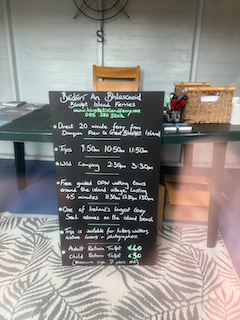 Bádóirí An Bhlascaoid
Blasket Island Ferries
www.blasketislandferry.com
085 280 5202
Direct 20 minute ferry from
Dunquin Pier to Great Blasket Island
Trips 9:50am 10:50am 11:50am
Wild Camping 2:30pm 3:30pm
Free guided OPW walking tours
around the island village lasting
45 minutes 11:30am 12:30pm 1:30pm
One of Ireland's largest Grey
Seal colonies on the island beach
Trip is suitable for hikers, walkers,
nature lovers + photographers
Adult Return Ticket €40
Child Return Ticket €30
(Minimum age 7 years old)